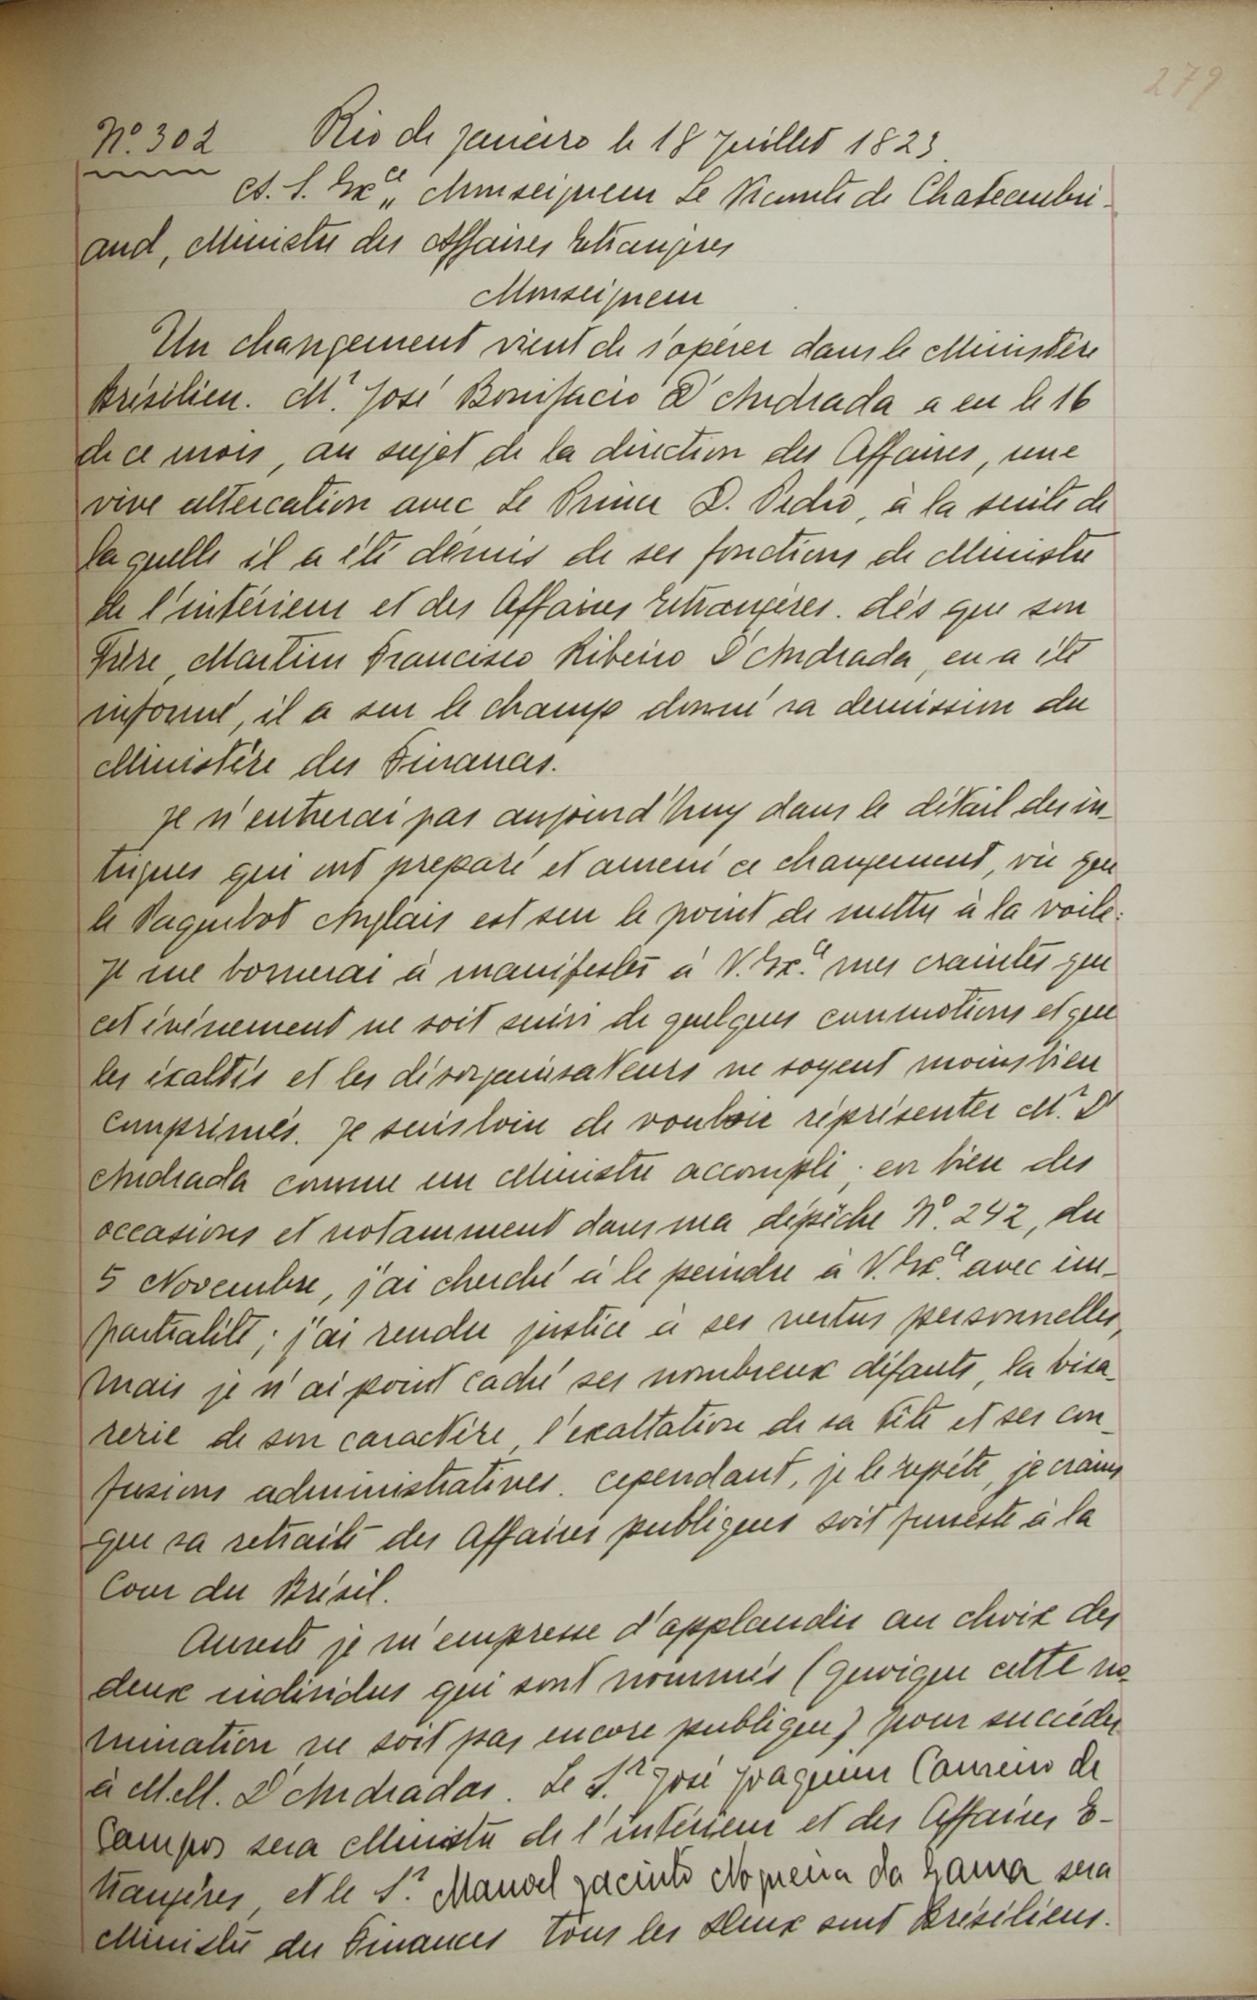 279
Nº. 302 Rio de Janeiro le 18 Juillet 1823.
A. S. Exce„ Monseigneur Le Vicomte de Chateaubri-
and, Ministre des Affaires Etrangères
Monseigneur
Un changement vient de s'opérer dans le Ministère
Brésilien. Mr. José Bonifacio D'Andrada a eu le 16
de ce mois, au sujet de la direction des Affaires, une
vive altercation avec Le Prince D. Pedro, à la suite de
laquelle il a été démis de ses fonctions de Ministre
de l'intérieur et des Affaires Etrangères. dés que son
Frère, Martim Francisco Ribeiro D'Andrada, en a été
informé, il a sur le champ donné sa demission du
Ministére des Finances.
Je n'entrerai pas aujourd'huy dans le détail des in-
trigues qui ont preparé et amené ce changement, vû que
le Paquebot Anglais est sur le point de mettre à la voile:
Je me bornerai à manifester à V. Exce. mes craintes que
cet événement ne soit suivi de quelques commotions et que
les éxaltés et les désorganisateurs ne soyent moins bien
comprimés. Je suis loin de vouloir réprésenter Mr. D'
Andrada comme un Ministre accompli; en bien des
occasions et notamment dans ma dépêche Nº. 242, du
5 Novembre, j'ai cherché à le peindre à V. Exce. avec im-
partialité; j'ai rendu justice à ses vertus personnelles,
mais je n'ai point caché ses nombreux défauts, la biza-
rerie de son caractère, l'exaltation de sa tête et ses con-
fusions administratives. cependant, je le repéte, je crains
que sa retraite des Affaires publiques soit funeste à la
Cour du Brésil.
Aureste je m'empresse d'applaudir au choix des
deux individus qui sont nommés (quoique cette no-
mination ne soit pas encore publique) pour succéder
à M.M. D'Andradas. Le Sr. José Joaquim Carneiro de
Campos sera Ministre de l'intérieur et des Affaires E-
trangères, et le Sr. Manoel Jacinto Nogueira da Gama sera
Ministre des Finances tous les deux sont Brésiliens.